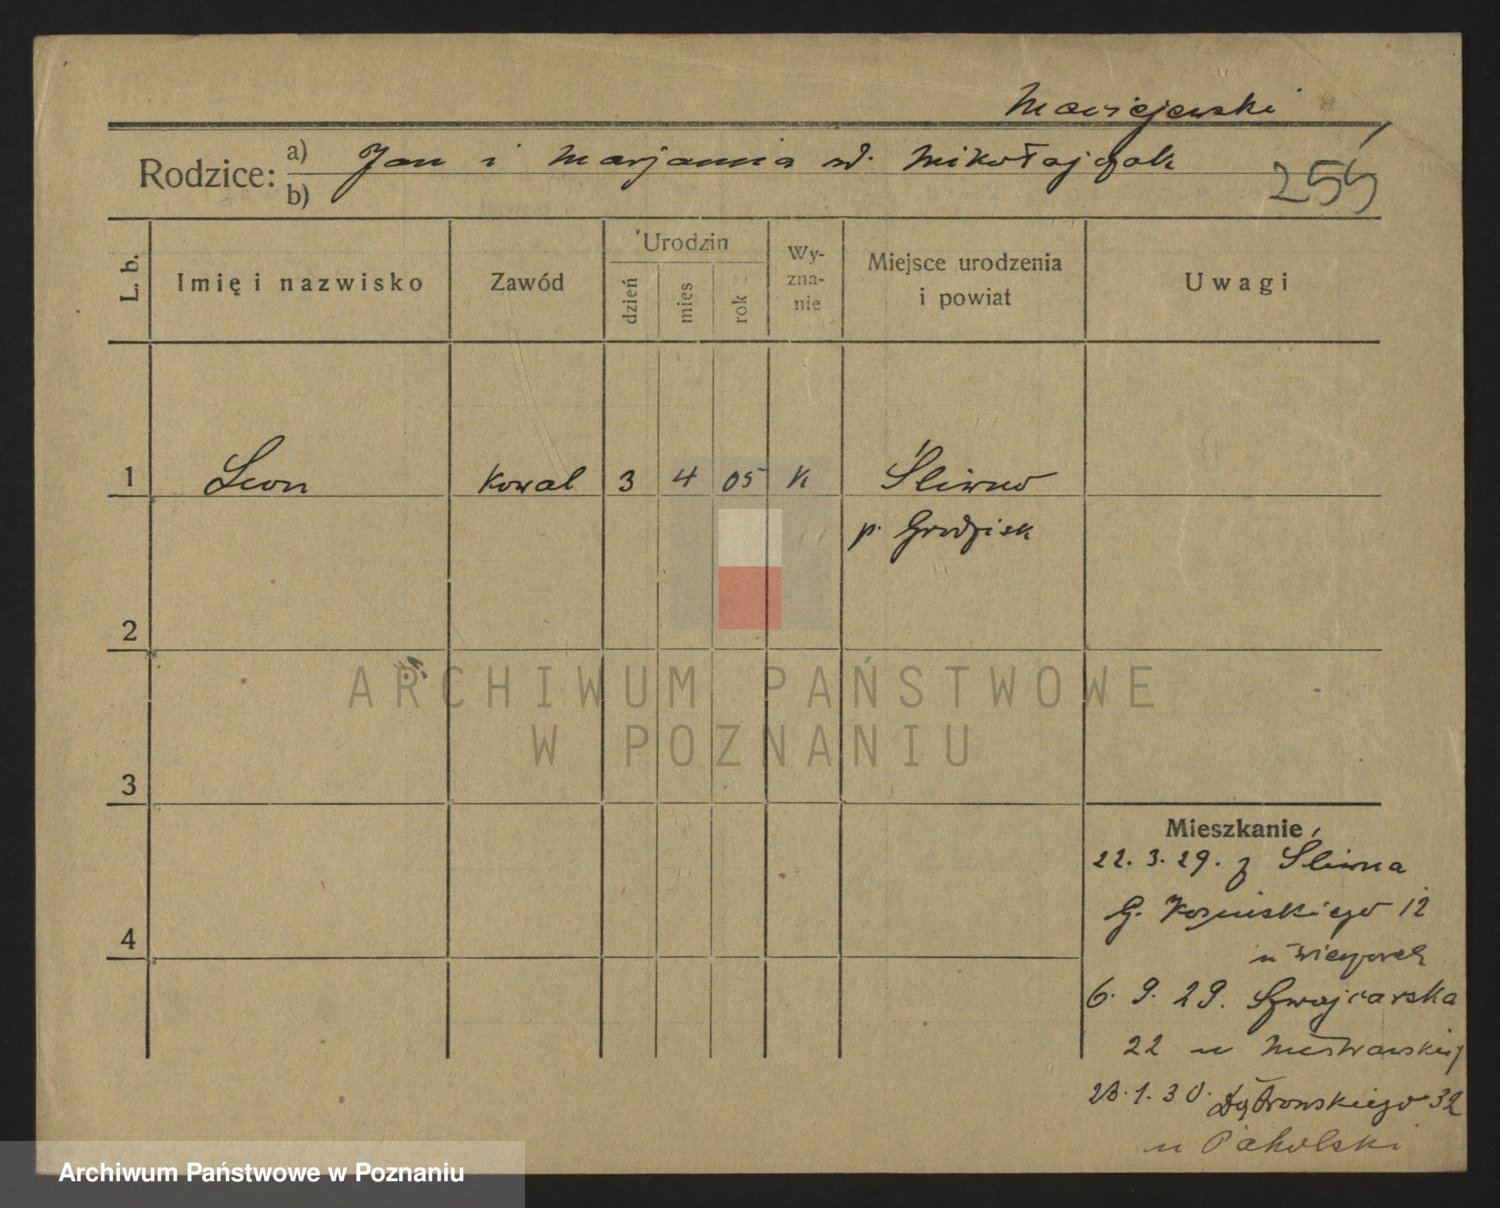 Maciejewski
Rodzice: a) Jan i Marjanna
b) Mikołajczak
255
L. b.
Imię i nazwisko
Zawód
Urodzin
dzień
mies
rok
Wy-
zna-
nie
Miejsce urodzenia
i powiat
Uwagi
1 Leon kowal 3 4 05 K Śliwno
p. Grodzisk
2
3
4
Mieszkanie
22. 3. 29. z Śliwna
G. 12
u
6. 9. 29. Szwajcarska
22 u
23. 1. 30. Dąbrowskiego 32
u Pakolski
ARCHIWUM PAŃSTWOWE
W POZNANIU
Archiwum Państwowe w Poznaniu